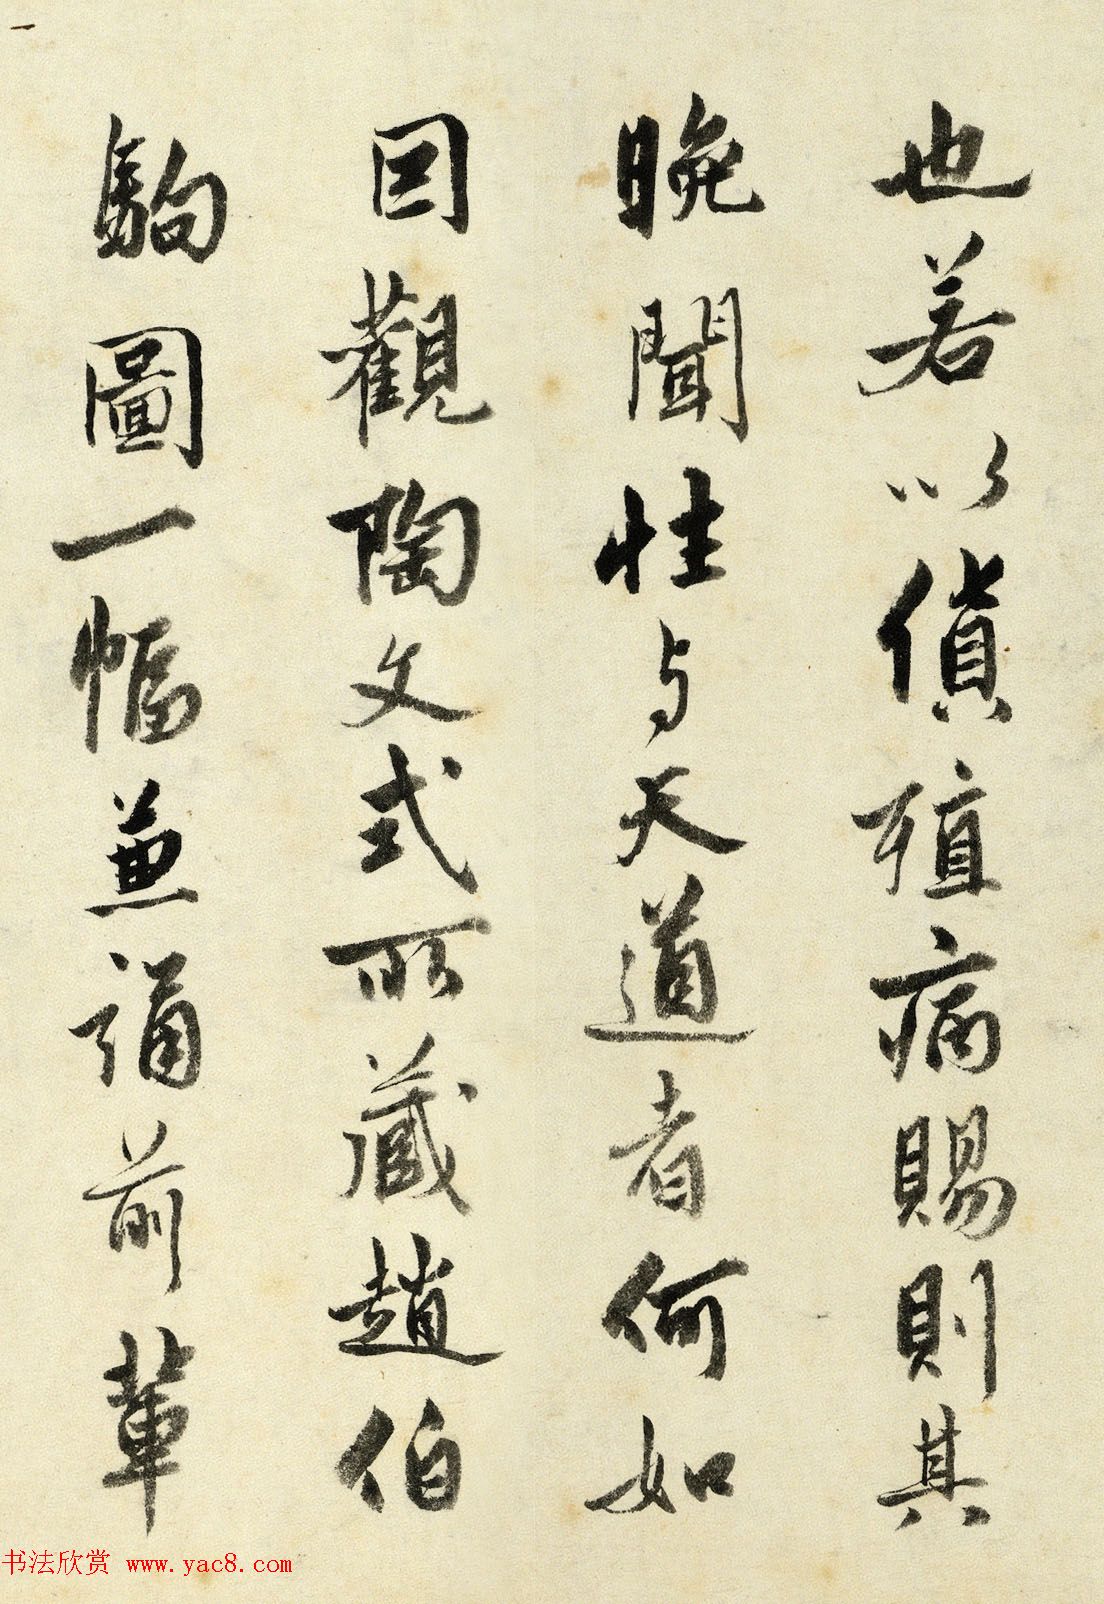 也若以貨殖病賜則其
晚聞性与天道者何如
因觀陶文式所藏趙伯
駒圖一幅兼誦前輩
书法欣赏 www.yac8.com